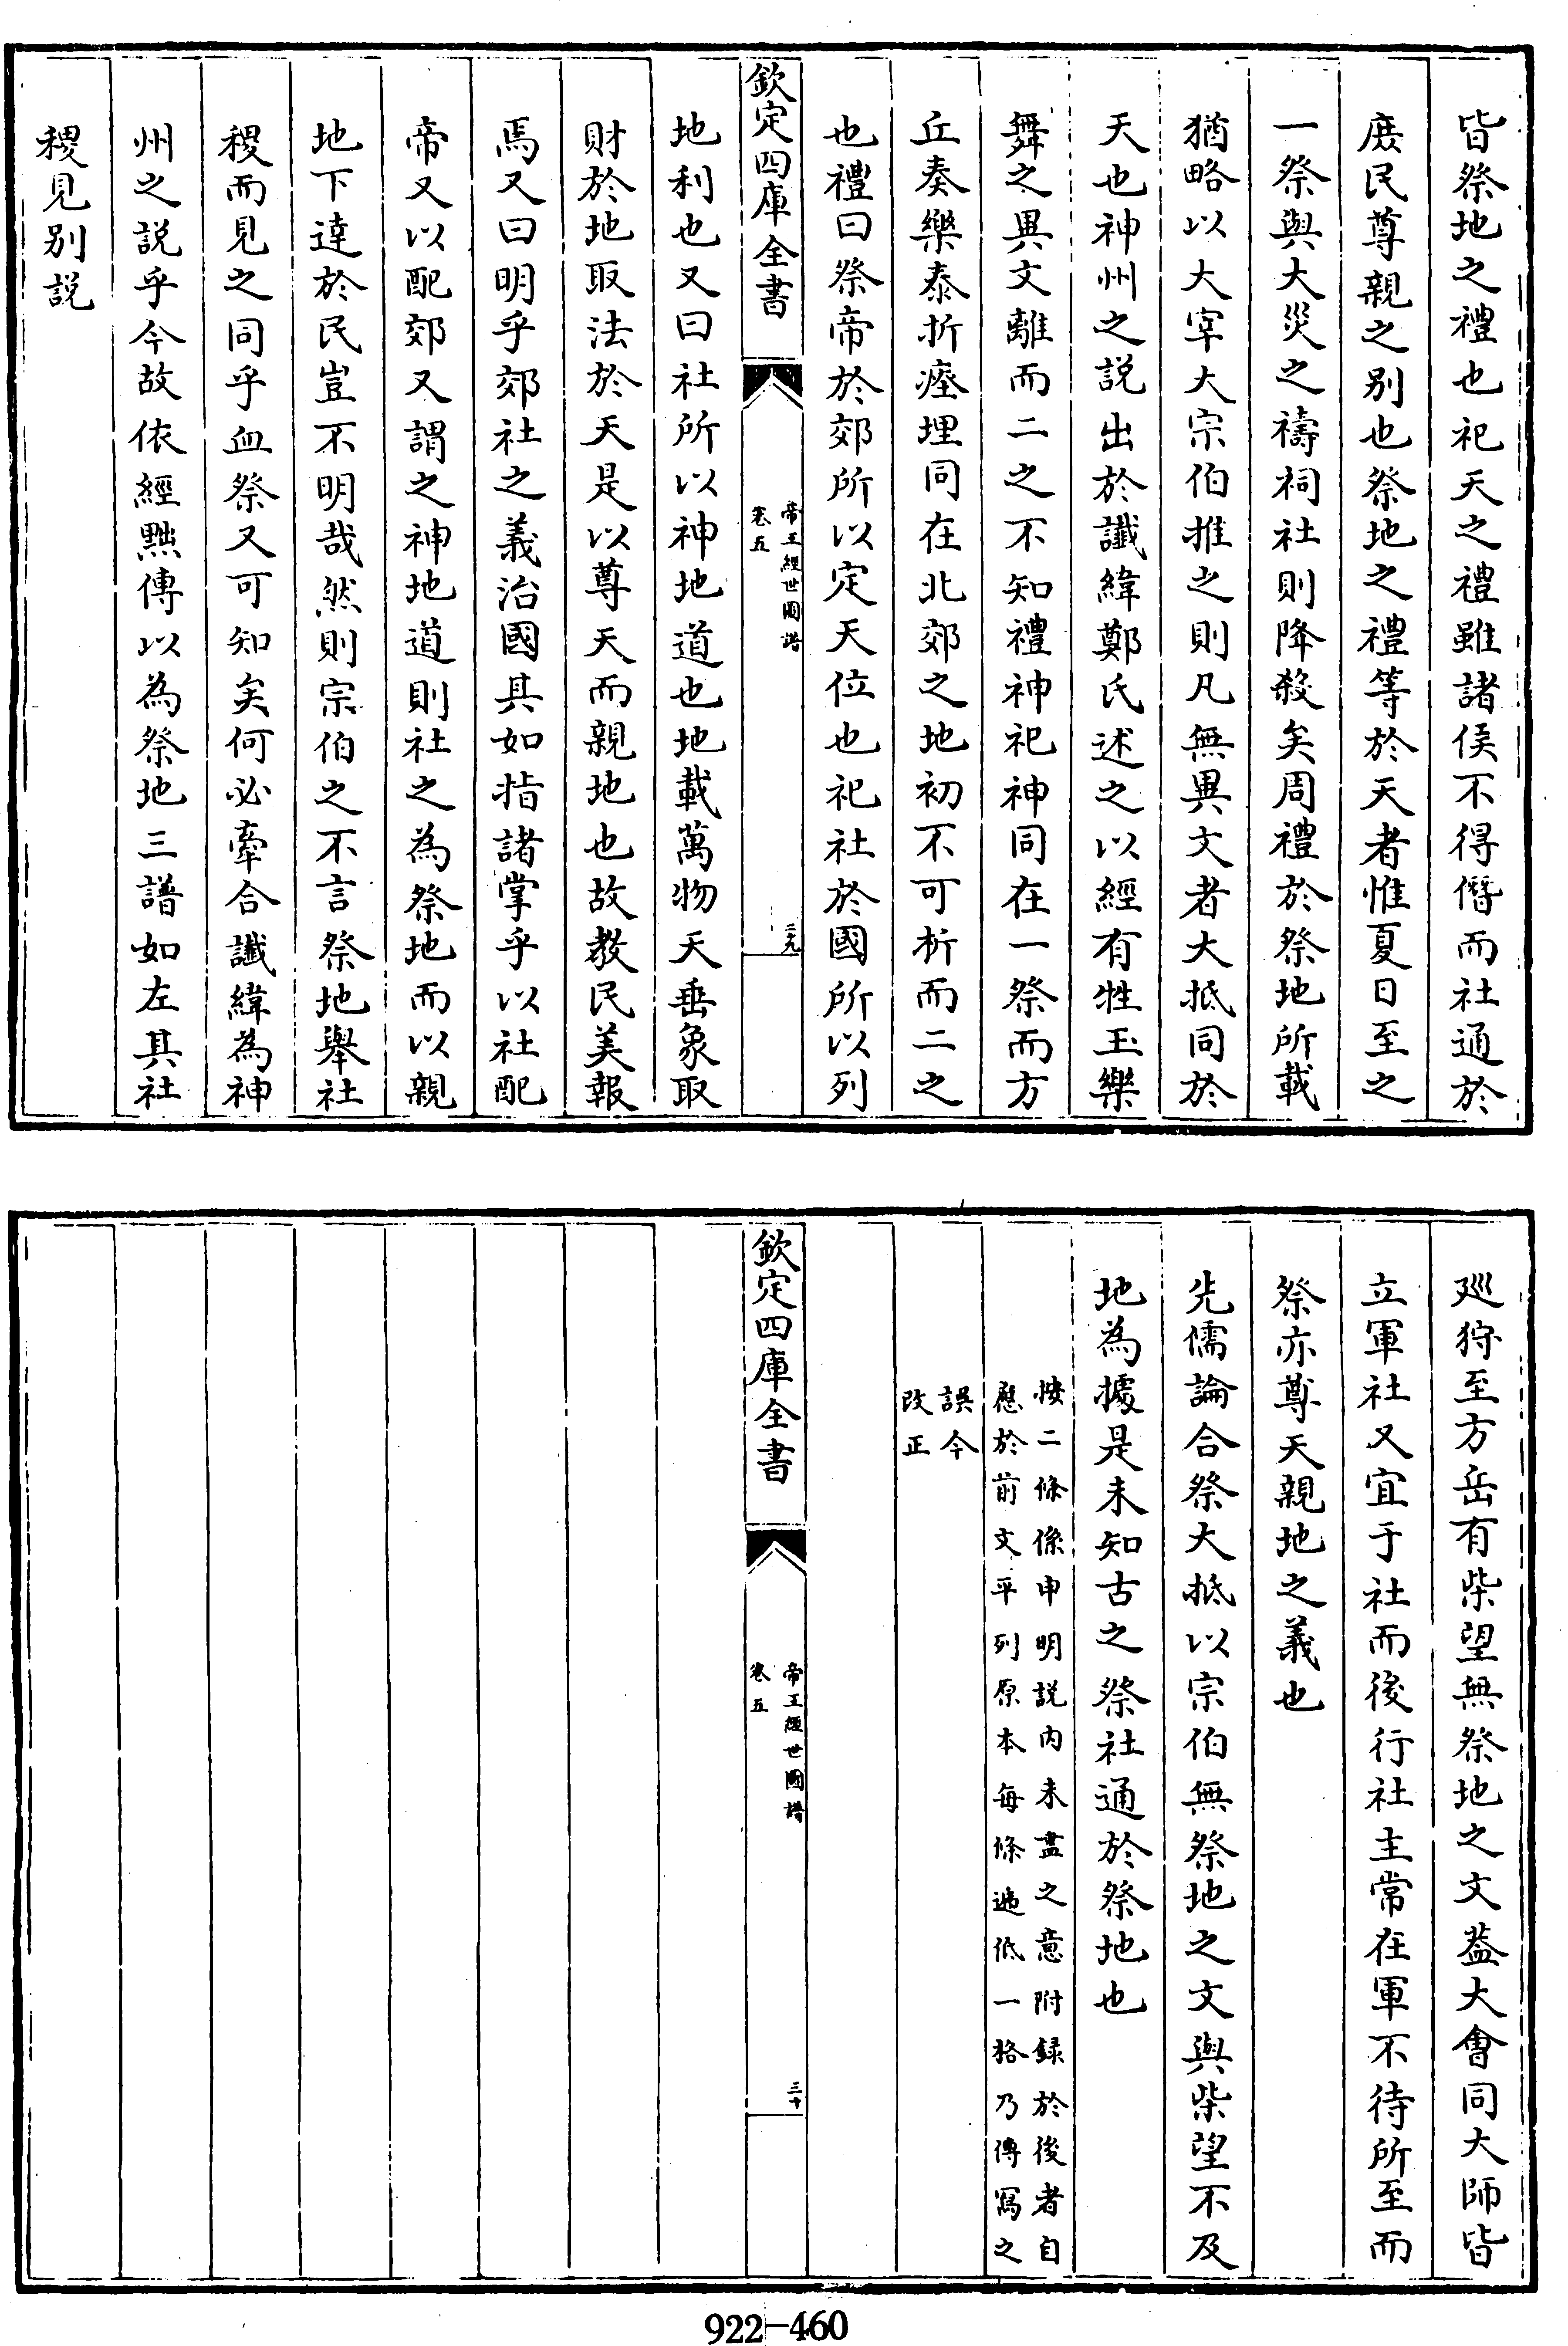 皆祭地之禮也祀天之禮雖諸侯不得僭而社通於
庻民尊親之别也祭地之禮等於天者惟夏日至之
一祭與大災之禱祠社則降殺矣周禮於祭地所載
猶略以大宰大宗伯推之則凡無異文者大抵同於
天也神州之説出於讖緯鄭氏述之以經有牲玉樂
舞之異文離而二之不知禮神祀神同在一祭而方
丘奏樂泰折瘞埋同在北郊之地初不可析而二之
也禮曰祭帝於郊所以定天位也祀社於國所以列
欽定四庫全書
帝王經世圖譜
卷五
二十九
地利也又曰社所以神地道也地載萬物天垂象取
財於地取法於天是以尊天而親地也故教民美報
焉又曰明乎郊社之義治國其如指諸掌乎以社配
帝又以配郊又謂之神地道則社之為祭地而以親
地下達於民豈不明哉然則宗伯之不言祭地舉社
稷而見之同乎血祭又可知矣何必牽合讖緯為神
州之説乎今故依經黜傳以為祭地三譜如左其社
稷見别説
廵狩至方岳有柴望無祭地之文葢大㑹同大師皆
立軍社又宜于社而後行社主常在軍不待所至而
祭亦尊天親地之義也
先儒論合祭大抵以宗伯無祭地之文與柴望不及
地為據是未知古之祭社通於祭地也
按二條係申明説内未盡之意附録於後者自
應於前文平列原本每條遞低一格乃傳寫之
誤今
改正
欽定四庫全書
帝王經世圖譜
卷五
三十
922-460